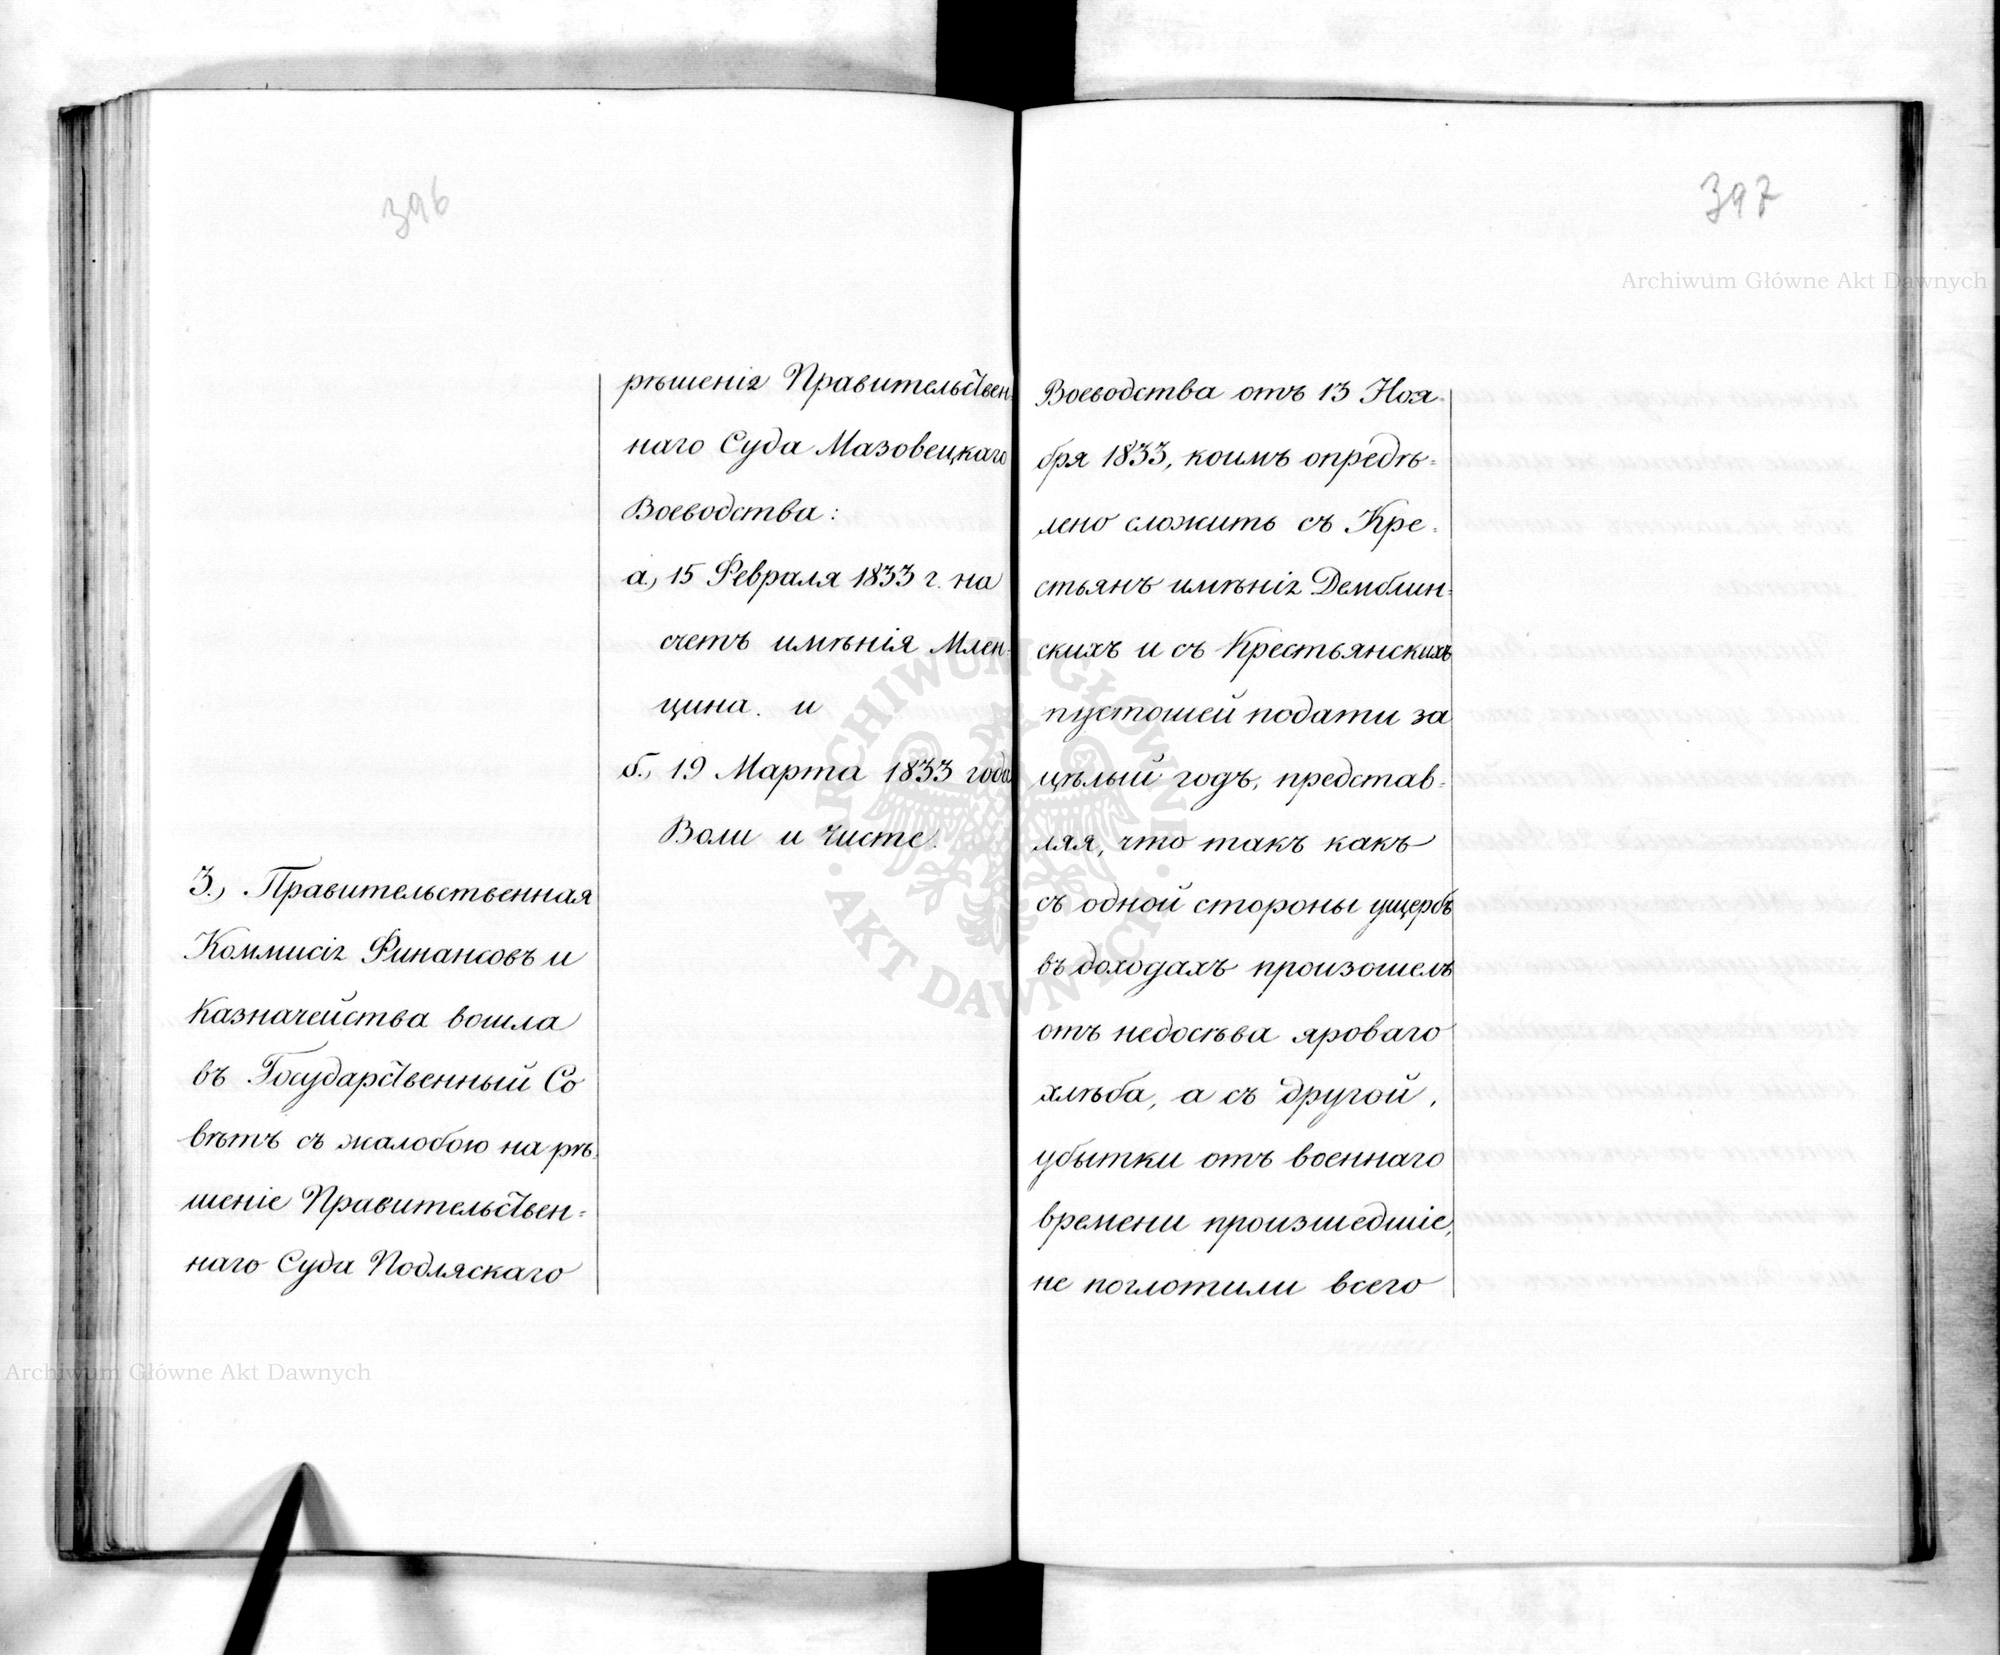 396
рѣшенія Правительствен-
наго Суда Мазовецкаго
Воеводства:
а., 15 Февраля 1833 г. на
счетъ имѣнія Млен-
цина. и
б., 19 Марта 1833 года
Воли и Чисте.
3., Правительственная
Коммисія Финансовъ и
Казначейства вошла
въ Государственный Со
вѣтъ съ жалобою на рѣ-
шеніе Правительствен=
наго Суда Подляскаго
397
Воеводства отъ 13 Ноя-
бря 1833, коимъ опредѣ=
лено сложить съ Кре-
стьянъ имѣнія Демблин-
скихъ и съ Крестьянскихъ
пустошей подати за
цѣлый годъ, представ=
ляя, что такъ какъ
съ одной стороны ущербъ
въ доходахъ произошелъ
отъ недосѣва яроваго
хлѣба, а съ другой,
убытки отъ военнаго
времени произшедшіе,
не поглотили всего
Archiwum Główne Akt Dawnych
Archiwum Główne Akt Dawnych
ARCHIWUM GŁÓWNE
AKT DAWNYCH